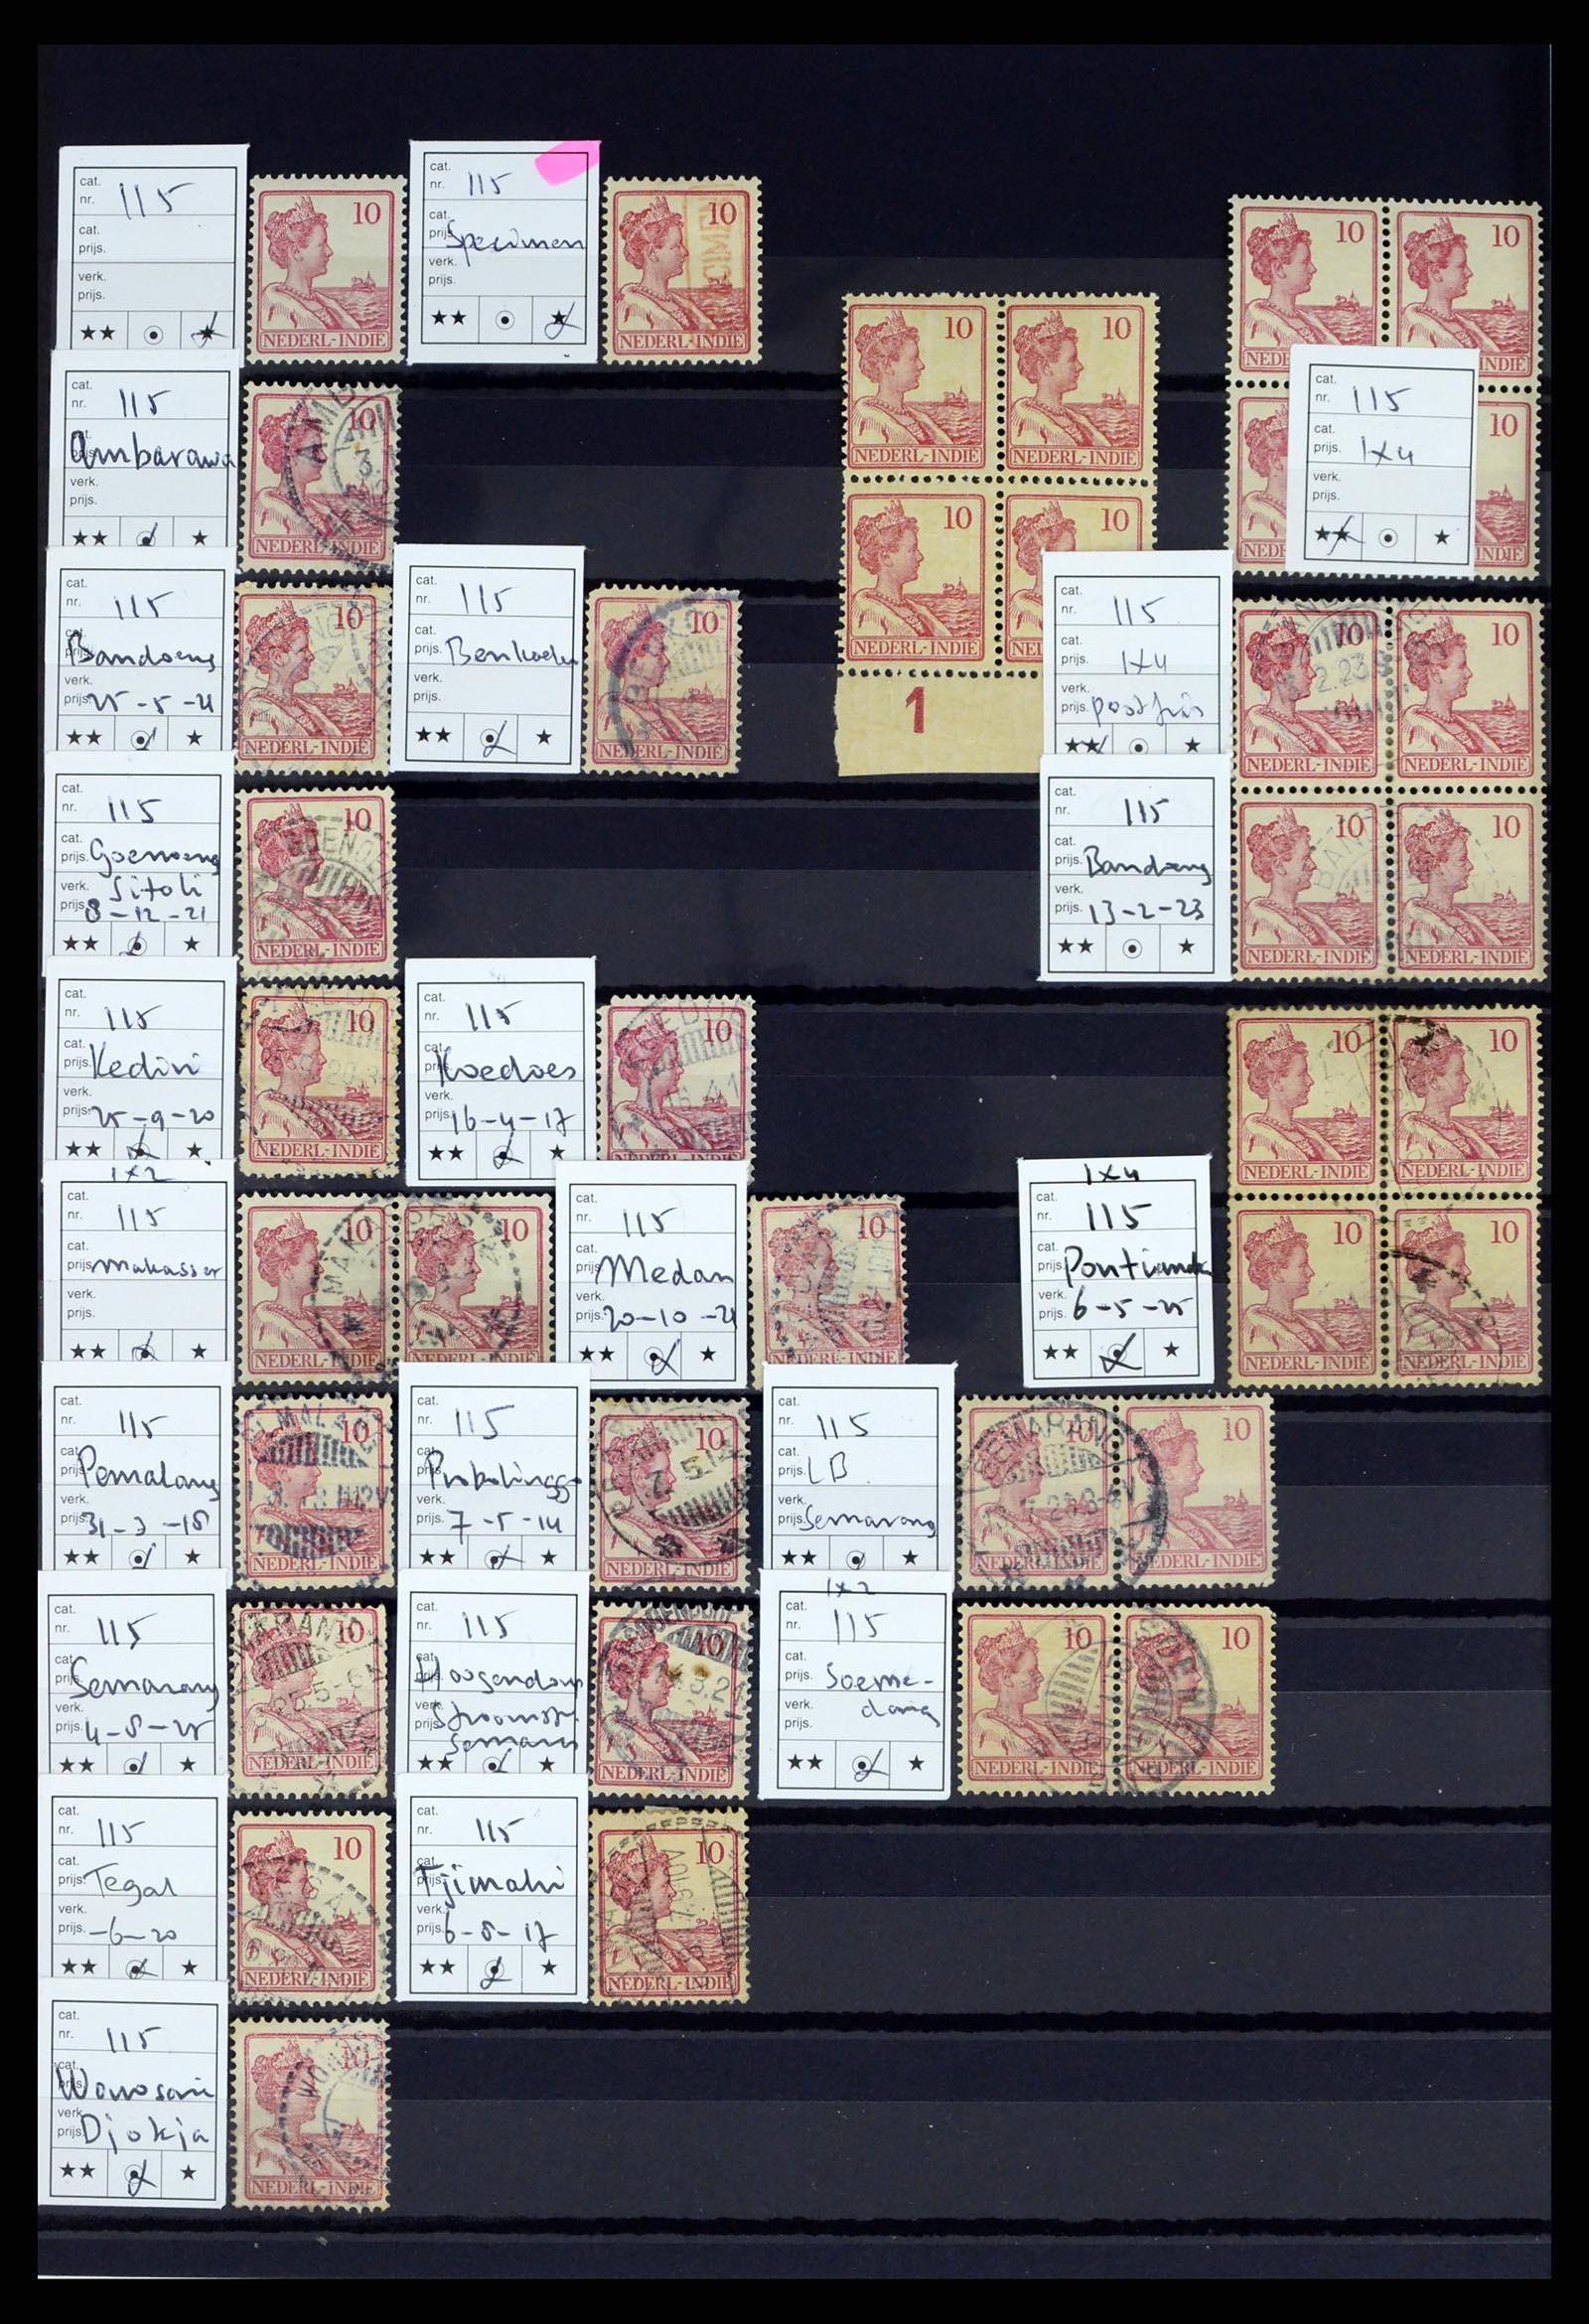 cat.
nr. 115
cat.
prijs.
verk.
prijs.
★★ ★
10
NEDERL-INDIE
cat.
nr. 115
cat.
prijs. Specimen
verk.
prijs.
★★ ★
10
NEDERL-INDIE
10
10
10
NEDERL-INDIE
10
NEDERL-INDIE
10
NEDERL-INDIE
10
1
cat.
nr. 115
cat.
prijs. 1x4
verk.
prijs.
★★ ★
10
cat.
nr. 115
Ambarawa
verk.
prijs.
★★ ★
10
NEDERL-INDIE
cat.
nr. 115
cat.
prijs. Bandoeng
verk.
prijs. 25-5-21
★★ ★
10
NEDERL-INDIE
cat.
nr. 115
cat.
prijs. Benkoelen
verk.
prijs.
★★ ★
10
NEDERL-INDIE
cat.
nr. 115
cat.
prijs. 1x4
verk.
prijs. postfris
★★ ★
10
NEDERL-INDIE
10
NEDERL-INDIE
10
NEDERL-INDIE
10
NEDERL-INDIE
cat.
nr. 115
cat.
prijs. Bandoeng
verk.
prijs. 13-2-23
★★ ★
cat.
nr. 115
cat.
prijs. Goenoeng
verk. Sitoli
prijs. 8-12-21
★★ ★
10
NEDERL-INDIE
cat.
nr. 115
cat.
prijs. Kediri
verk.
prijs. 25-9-20
★★ ★
10
NEDERL-INDIE
cat.
nr. 115
cat.
prijs. Koedoes
verk.
prijs. 16-4-17
★★ ★
10
NEDERL-INDIE
10
NEDERL-INDIE
10
NEDERL-INDIE
10
NEDERL-INDIE
10
NEDERL-INDIE
1x2
cat.
nr. 115
cat.
prijs. Makasser
verk.
prijs.
★★ ★
10
NEDERL-INDIE
10
NEDERL-INDIE
cat.
nr. 115
cat.
prijs. Medan
verk.
prijs. 20-10-21
★★ ★
10
NEDERL-INDIE
1x4
cat.
nr. 115
cat.
prijs. Pontianak
verk.
prijs. 6-5-25
★★ ★
cat.
nr. 115
cat.
prijs. Pemalang
verk.
prijs. 31-3-18
★★ ★
10
NEDERL-INDIE
cat.
nr. 115
cat.
prijs. Probolinggo
verk.
prijs. 7-5-14
★★ ★
10
NEDERL-INDIE
cat.
nr. 115
cat.
prijs. LB
verk.
prijs. Semarang
★★ ★
SEMARANG
10
NEDERL-INDIE
10
NEDERL-INDIE
cat.
nr. 115
cat.
prijs. Semarang
verk.
prijs. 4-8-25
★★ ★
10
NEDERL-INDIE
cat.
nr. 115
cat.
prijs. Hoogendorp
verk.
prijs.
★★ ★
10
NEDERL-INDIE
1x2
cat.
nr. 115
cat.
prijs. Soeme-
verk. dang
prijs.
★★ ★
10
NEDERL-INDIE
10
NEDERL-INDIE
cat.
nr. 115
cat.
prijs. Tegal
verk.
prijs. -6-20
★★ ★
10
NEDERL-INDIE
cat.
nr. 115
cat.
prijs. Tjimahi
verk.
prijs. 6-8-17
★★ ★
10
NEDERL-INDIE
cat.
nr. 115
cat.
prijs. Wonosari
verk.
prijs. Djokja
★★ ★
10
NEDERL-INDIE